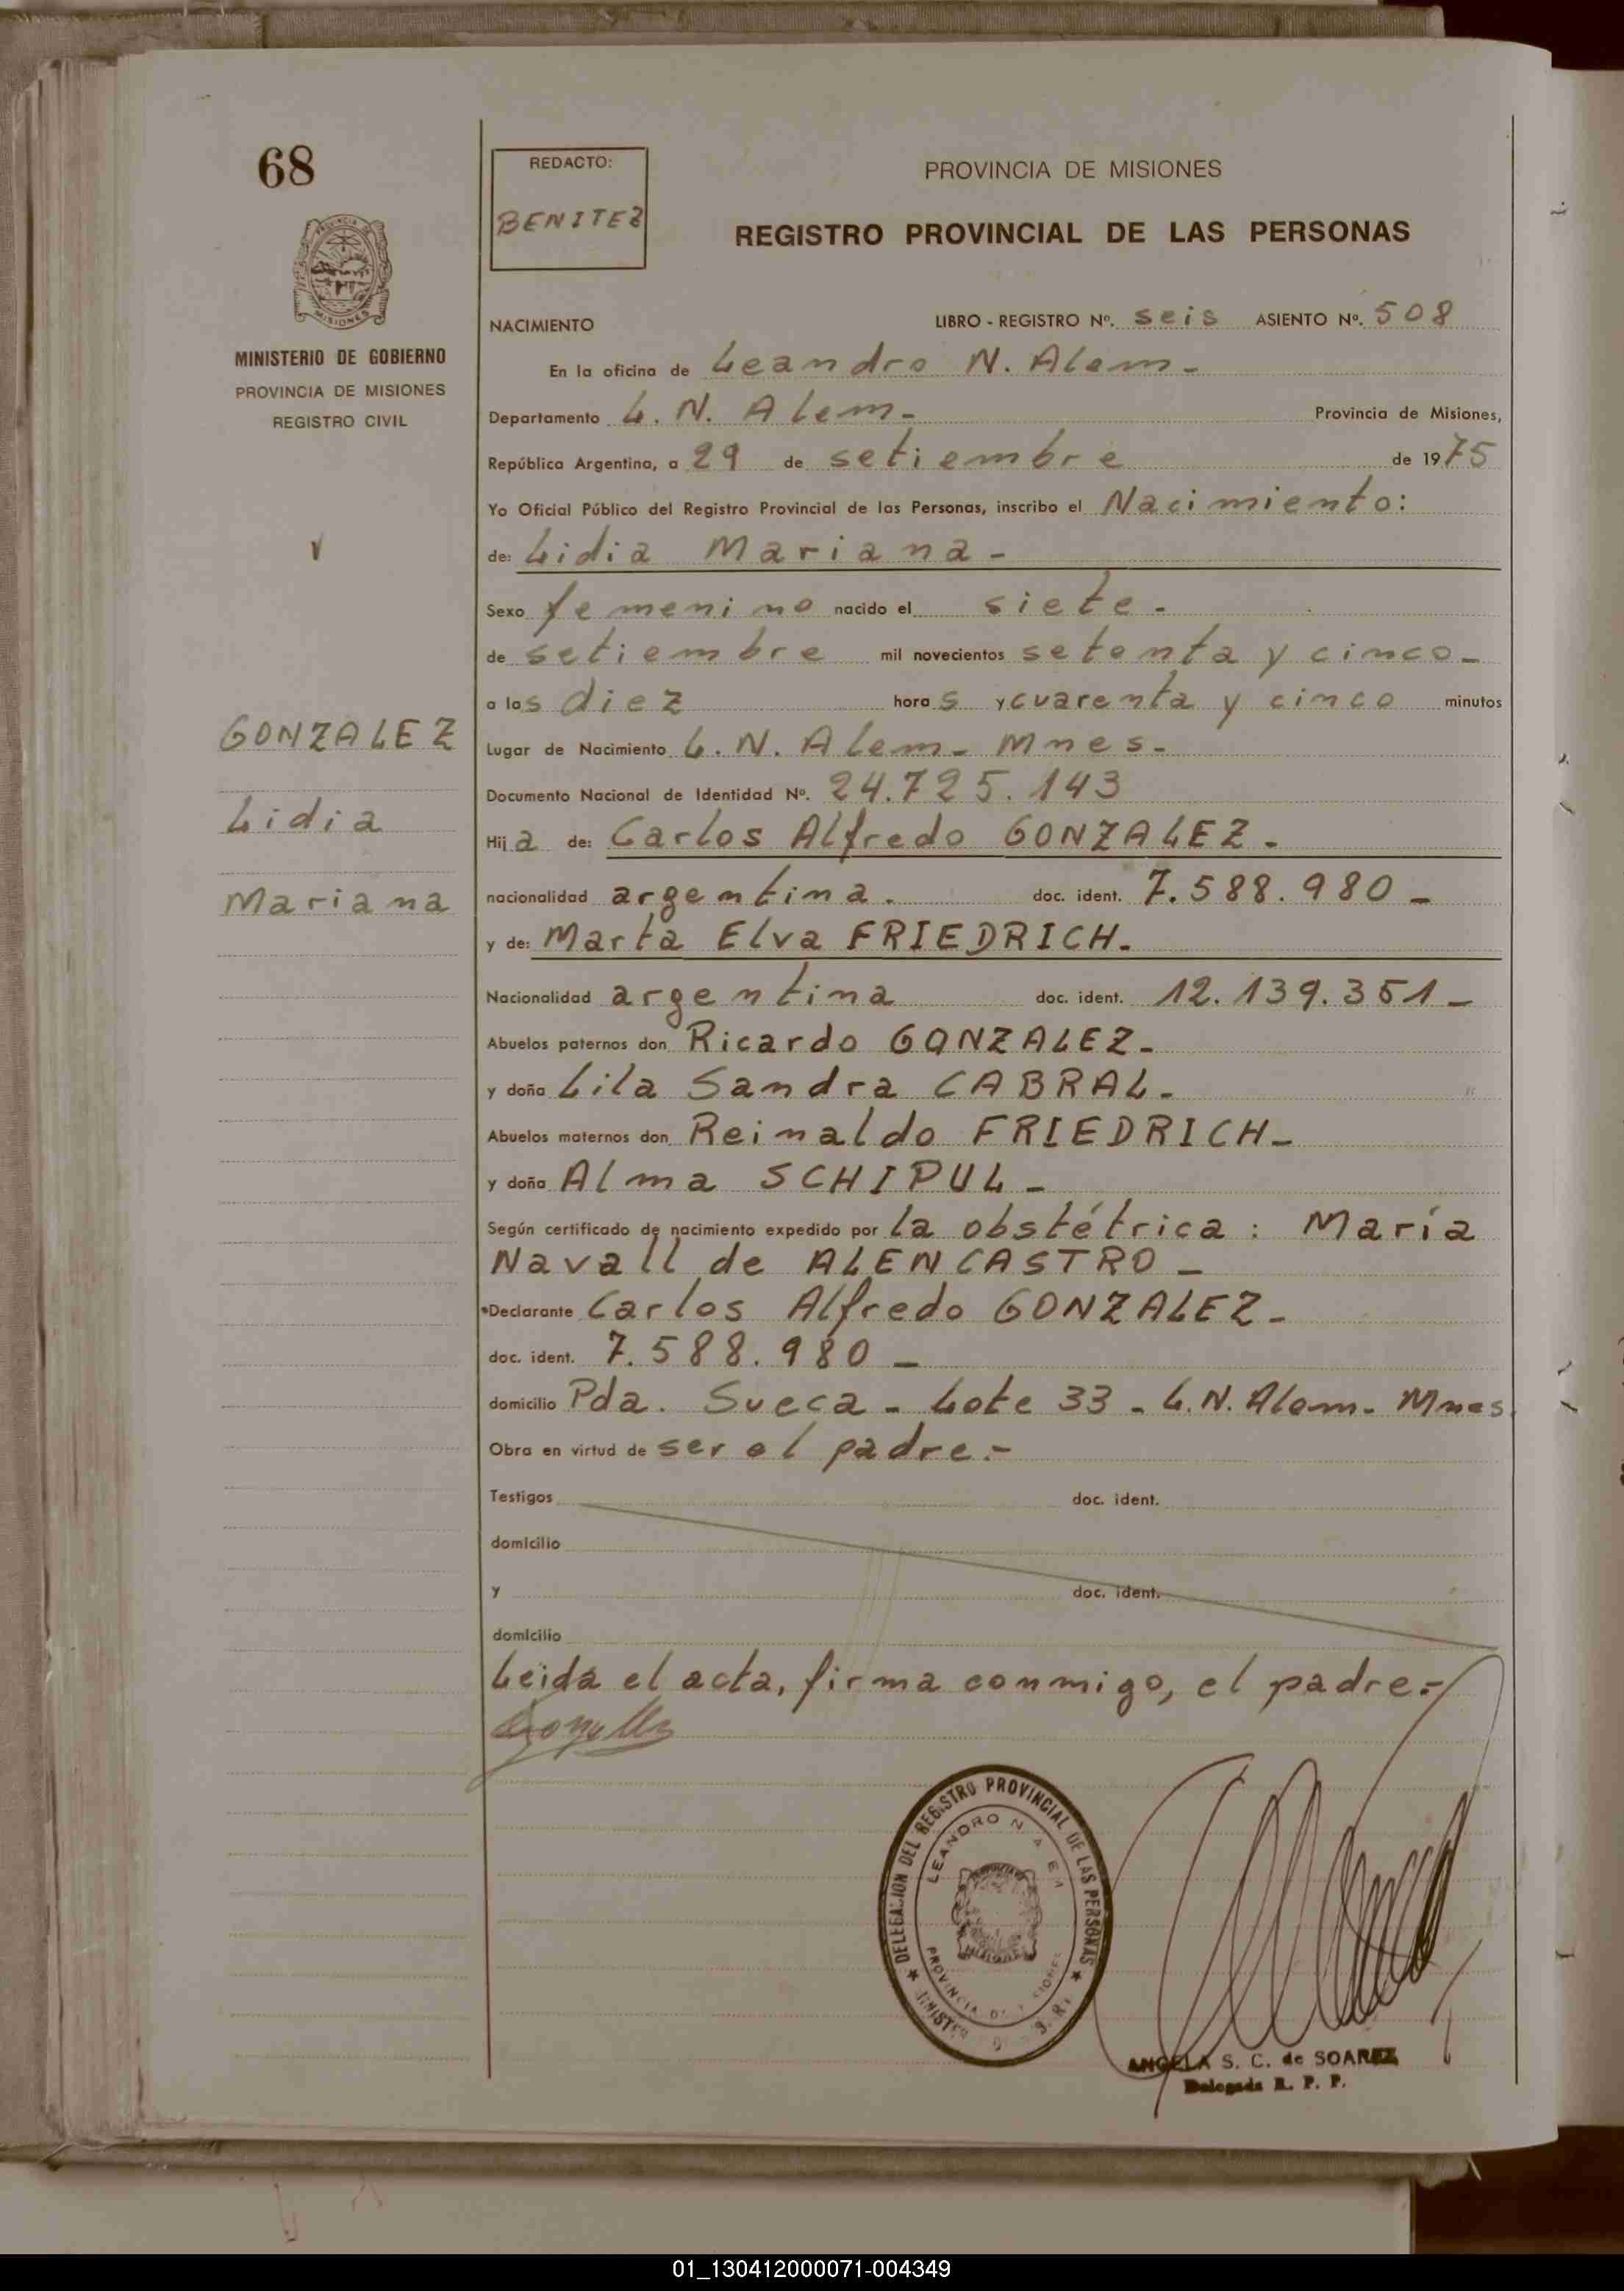 68
REDACTO:
BENITEZ
PROVINCIA DE MISIONES
REGISTRO PROVINCIAL DE LAS PERSONAS
MISIONES
MINISTERIO DE GOBIERNO
PROVINCIA DE MISIONES
REGISTRO CIVIL
NACIMIENTO LIBRO - REGISTRO Nº. seis ASIENTO Nº. 508
En la oficina de Leandro N. Alem.-
Departamento L. N. Alem.- Provincia de Misiones,
República Argentina, a 29 de setiembre de 1975
Yo Oficial Público del Registro Provincial de las Personas, inscribo el Nacimiento:
de: Lidia Mariana -
Sexo femenino nacido el siete.-
de setiembre mil novecientos setenta y cinco-
a las diez horas y cuarenta y cinco minutos
Lugar de Nacimiento L. N. Alem- Mnes-
Documento Nacional de Identidad Nº. 24.725.143
Hija de: Carlos Alfredo GONZALEZ -
nacionalidad argentina. doc. ident. 7.588.980 -
y de: Marta Elva FRIEDRICH.
Nacionalidad argentina doc. ident. 12.139.351 -
Abuelos paternos don Ricardo GONZALEZ-
y doña Lila Sandra CABRAL.
Abuelos maternos don Reinaldo FRIEDRICH-
y doña Alma SCHIPUL -
Según certificado de nacimiento expedido por la obstétrica: María
Navall de ALENCASTRO -
Declarante Carlos Alfredo GONZALEZ-
doc. ident. 7.588.980 -
domicilio Pda. Sueca - Lote 33 - L.N. Alem- Mnes.
Obra en virtud de ser el padre.-
Testigos doc. ident.
domicilio
y doc. ident.
domicilio
Leida el acta, firma conmigo, el padre.-
GONZALEZ
Lidia
Mariana
DELEGACION DEL REGISTRO PROVINCIAL DE LAS PERSONAS
LEANDRO N
PROVINCIA
ANGELA S. C. de SOAREZ
Delegada R. P. P.
01_130412000071-004349